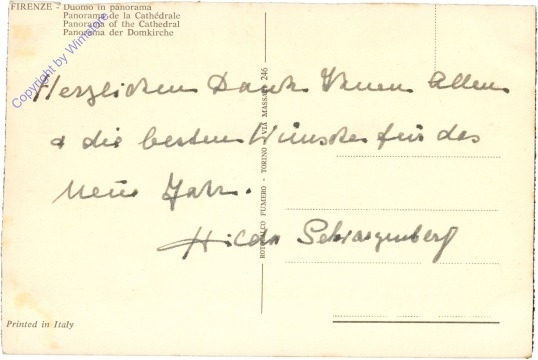 FIRENZE - Duomo in panorama
Panorama de la Cathédrale
Panorama of the Cathedral
Panorama der Domkirche
Copyright by Winsstore
Herzlichen Dank Ihnen Allen
& die besten Wünsche für das
neue Jahr.
Hilda Schwarzenberg
ROTALFALCO FUMERO - TORINO - VIA MASSARI 246
Printed in Italy